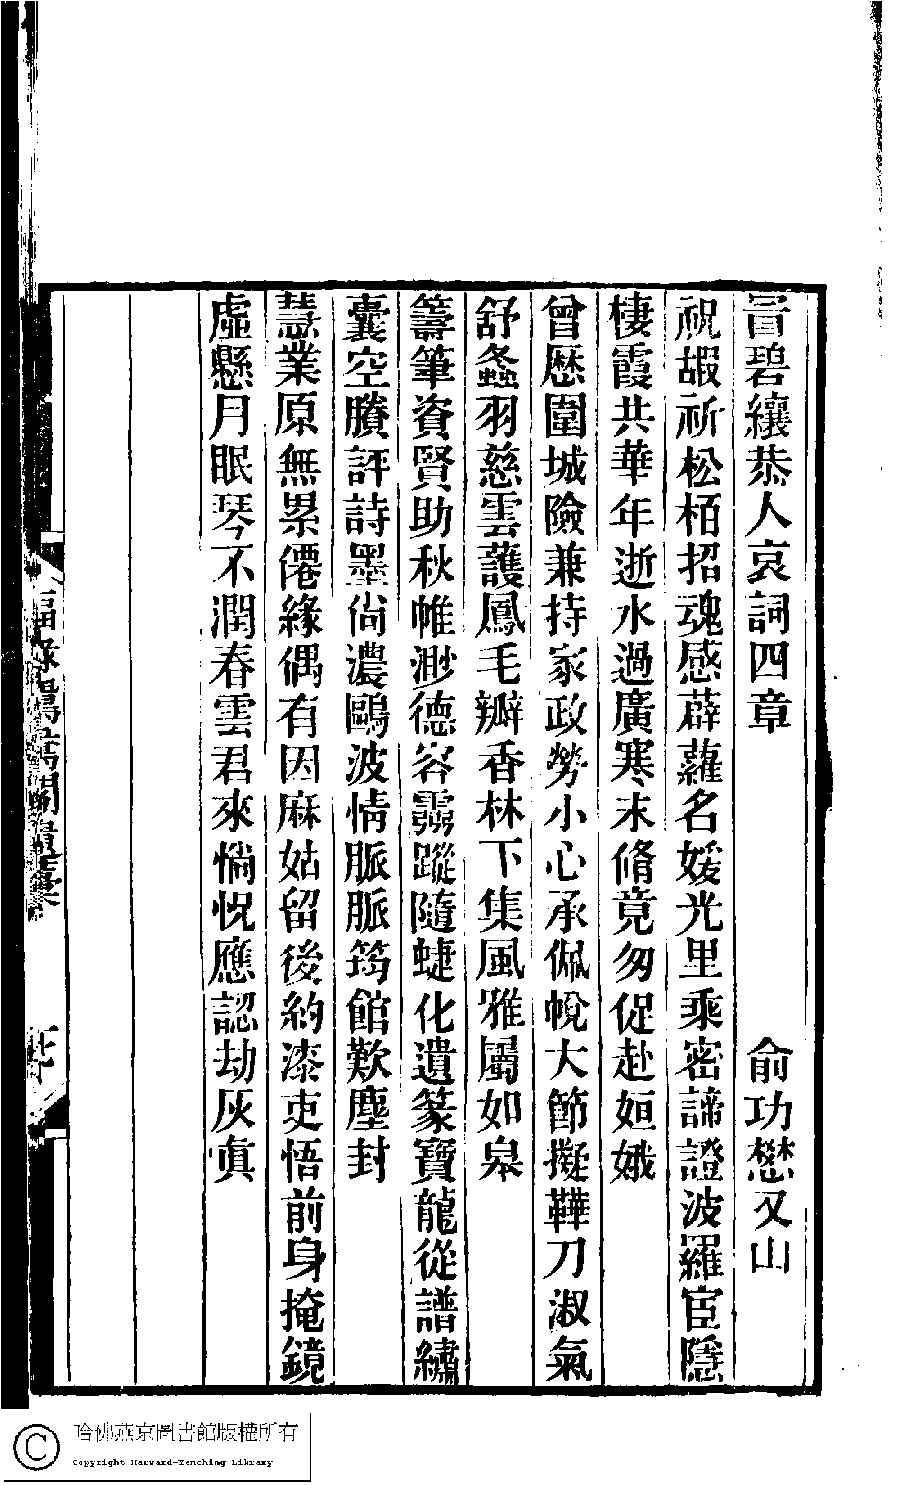 冒碧纕恭人哀詞四章　俞功懋又山
祝嘏祈松栢招魂感薜蘿名媛光里乘密諦證波羅宦隱
棲霞共華年逝水過廣寒末脩竟匆促赴姮娥
曾歷圍城險兼持家政勞小心承佩帨大節擬鞾刀淑氣
舒螽羽慈雲護鳳毛瓣香林下集風雅屬如皋
籌筆資賢助秋帷渺德容霛蹤隨蜨化遺篆寶龍從譜繡
囊空賸評詩墨尙濃鷗波情脈脈筠館歎塵封
慧業原無累僊緣偶有因麻姑留後約漆吏悟前身掩鏡
虛懸月眠琴不潤春雲君來惝怳應認劫灰眞
哈佛燕京圖書館版權所有
Copyright Harvard-Yenching Library